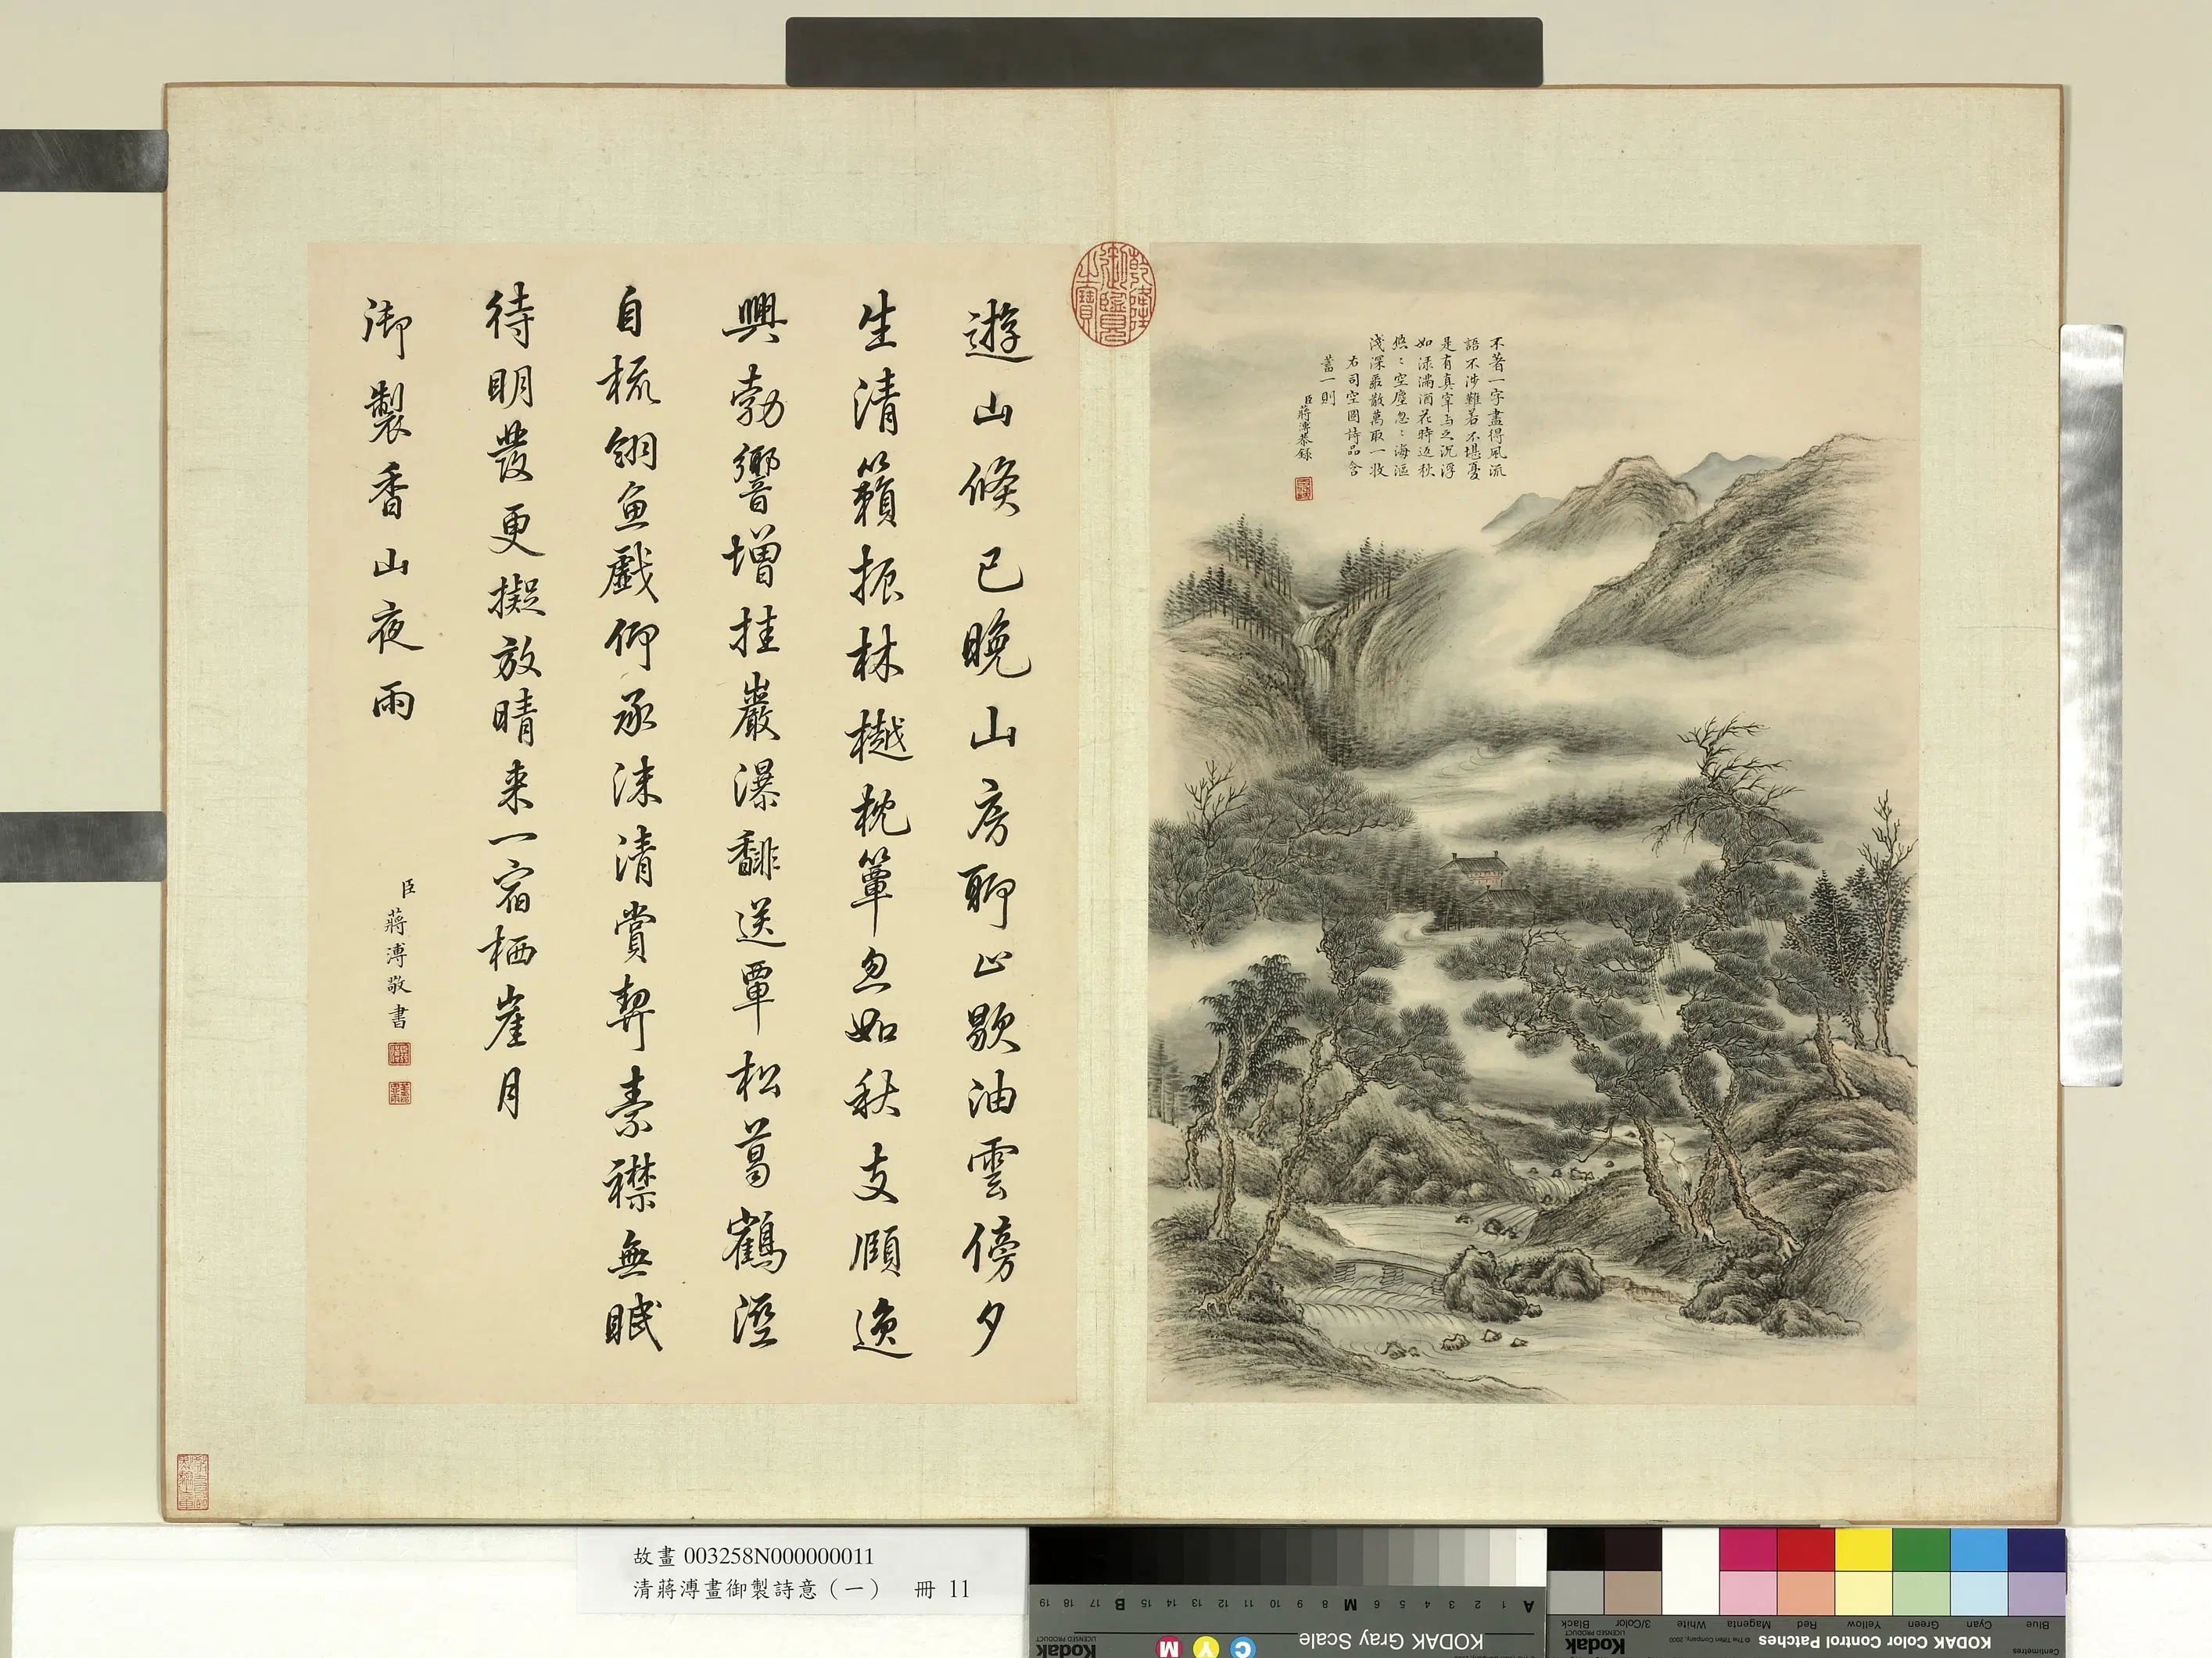 不著一字盡得風流
語不涉難若不堪憂
是有真宰與之沉浮
如淥滿酒花時返秋
悠〻空塵忽〻海漚
淺深聚散萬取一收
右司空圖詩品含
蓄一則
臣蔣溥恭錄
乾隆御覽之寶
遊山倏已晚山房聊止歇油雲傍夕
生清籟振林樾枕簟忽如秋支頤逸
興勃響增挂巖瀑馡送覃松葛鶴溼
自梳翎魚戲仰承沫清賞契素襟無眠
待明發更擬放晴来一宿栖崖月
御製香山夜雨
臣蔣溥敬書
故畫 003258N000000011
清蔣溥畫御製詩意（一） 冊 11
KODAK Gray Scale
C Y M
Kodak
LICENSED PRODUCT
A 1 2 3 4 5 6 M 8 9 10 11 12 13 14 15 B 17 18 19
KODAK Color Control Patches
© The Tiffen Company, 2000
Kodak
LICENSED PRODUCT
Centimetres
Blue Cyan Green Yellow Red Magenta White 3/Color Black